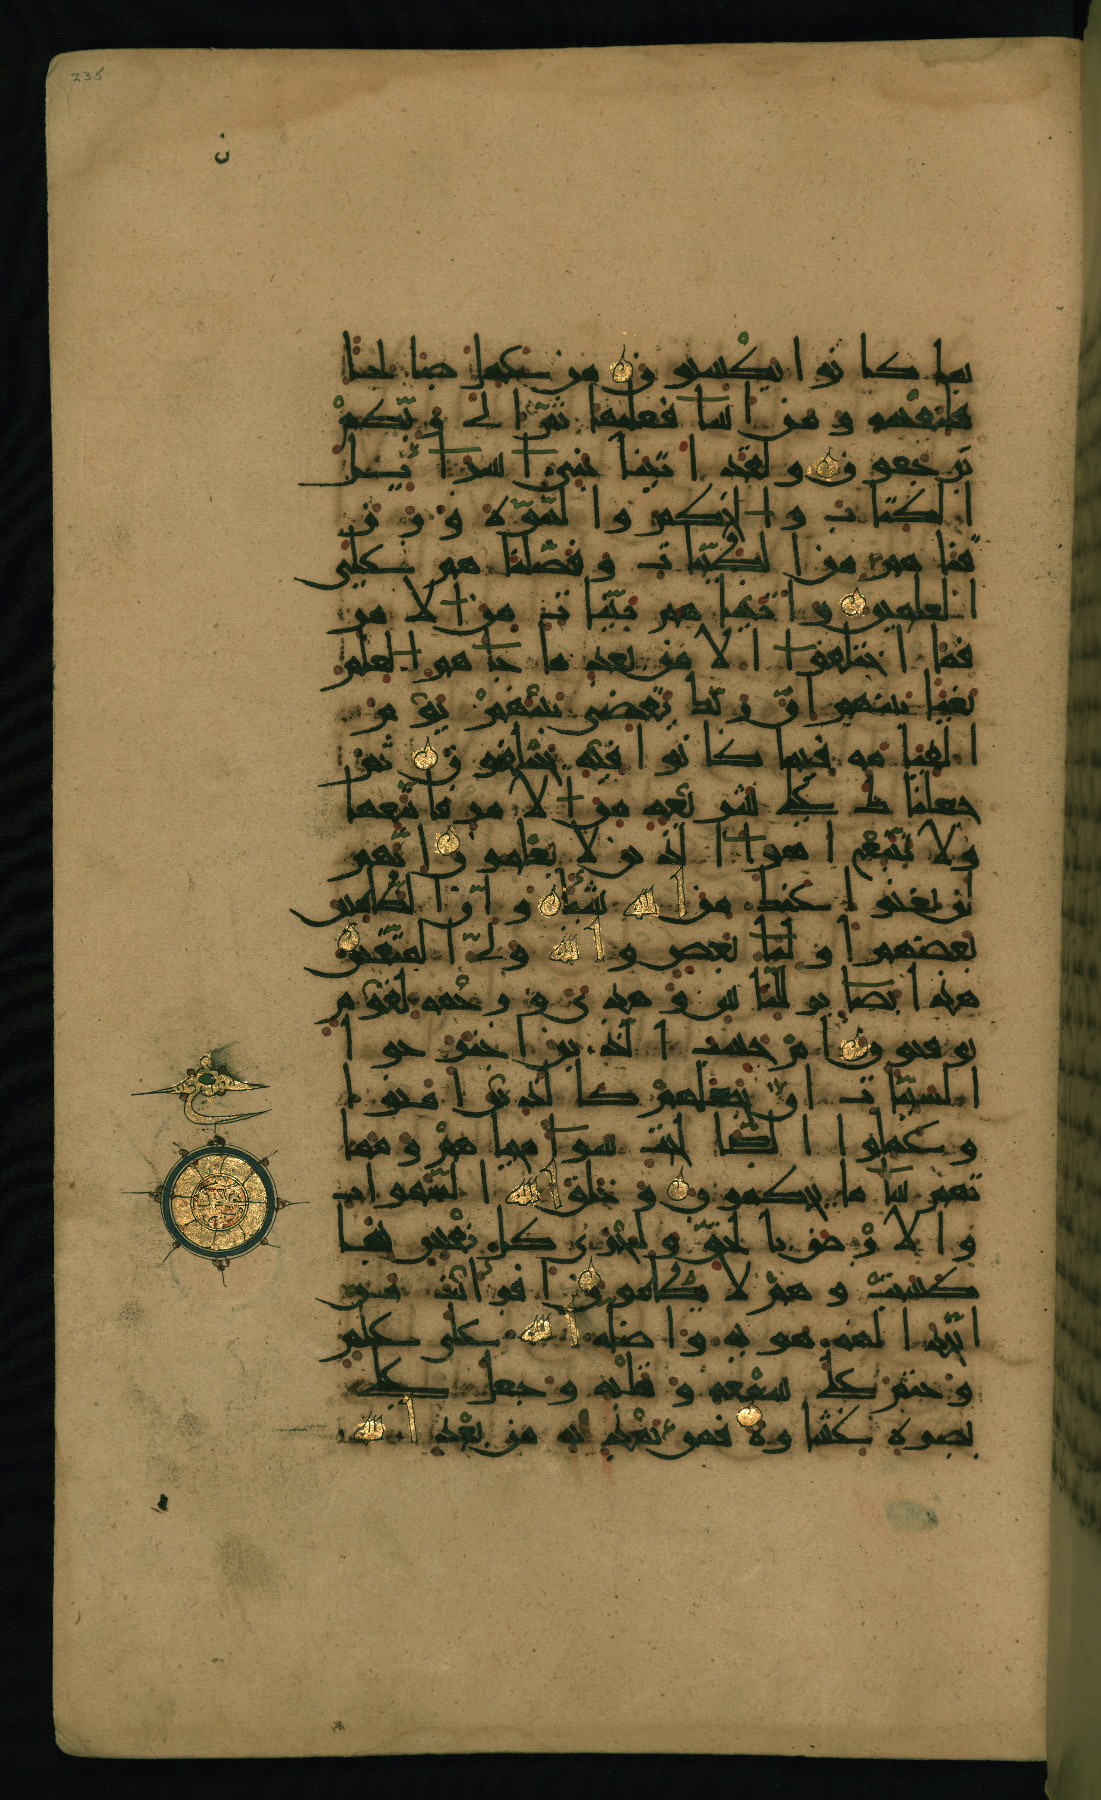 235
بما كانوا يكسبون من عمل صالحا
فلنفسه ومن اسا فعليها ثم الى ربكم
ترجعون ولقد اتينا بني اسرائيل
الكتاب والحكم والنبوة ورز
قناهم من الطيبات وفضلناهم على
العلمين واتيناهم بينات من الامر
فما اختلفوا الا من بعد ما جاهم العلم
بغيا بينهم ان ربك يقضي بينهم يوم
القيامه فيما كانوا فيه يختلفون ثم
جعلناك على شريعة من الامر فاتبعها
ولا تتبع اهوا الذين لا يعلمون انهم
لن يغنوا عنك من الله شيئا وان الظالمين
بعضهم اوليا بعض والله ولي المتقين
هذا بصاير للناس وهدى ورحمة لقوم
يوقنون ام حسب الذين اجترحوا
السيئات ان نجعلهم كالذين امنوا
وعملوا الصالحات سوا محياهم ومما
تهم سا ما يحكمون وخلق الله السموات
والارض بالحق ولتجزى كل نفس بما
كسبت وهم لا يظلمون افرايت من
اتخذ الهه هويه واضله الله على علم
وختم على سمعه وقلبه وجعل على
بصره غشاوة فمن يهديه من بعد الله